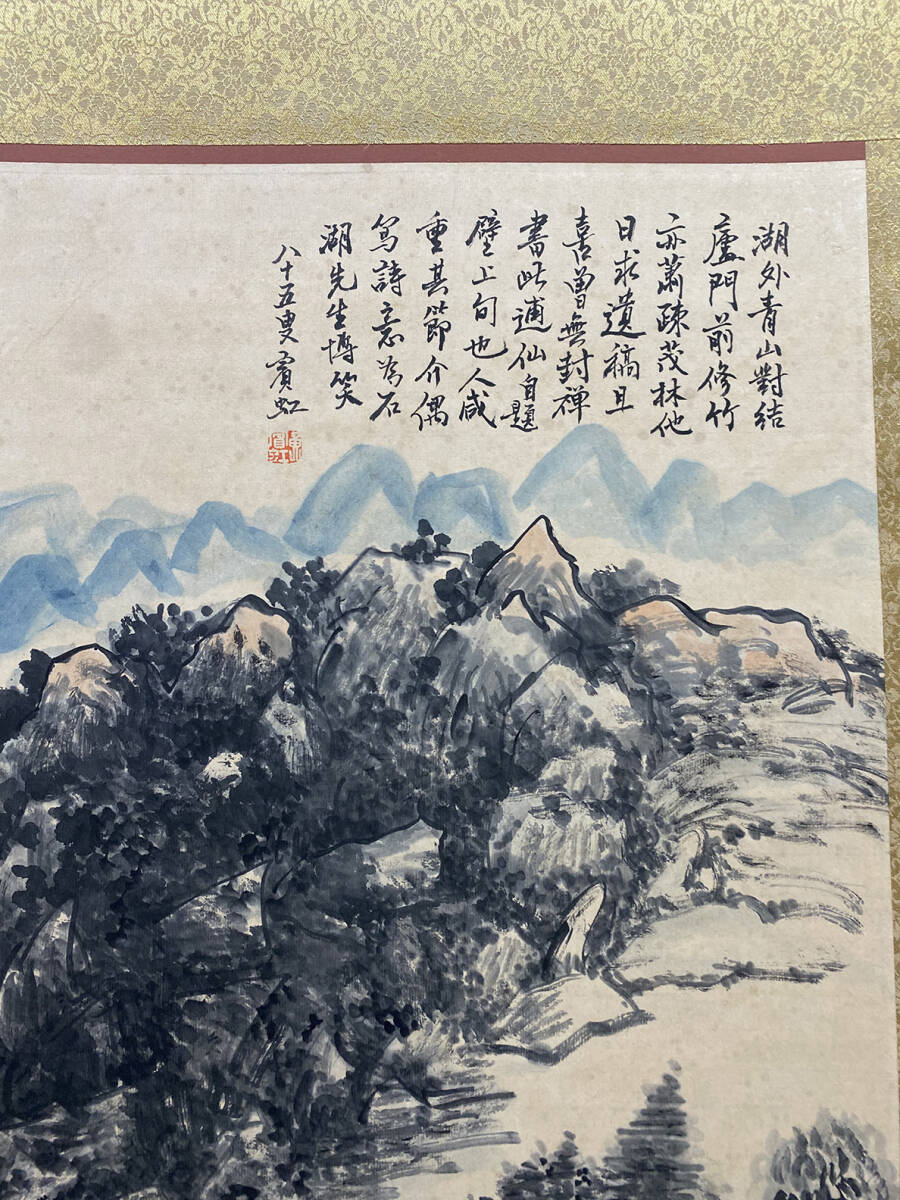 湖外青山對結
廬門前修竹
亦蕭疎茂林他
日求遺稿且
喜曽無封禅
書此逋仙自題
壁上句也人咸
重其節介偶
寫詩意為石
湖先生博笑
八十五叟賓虹
黃賓虹